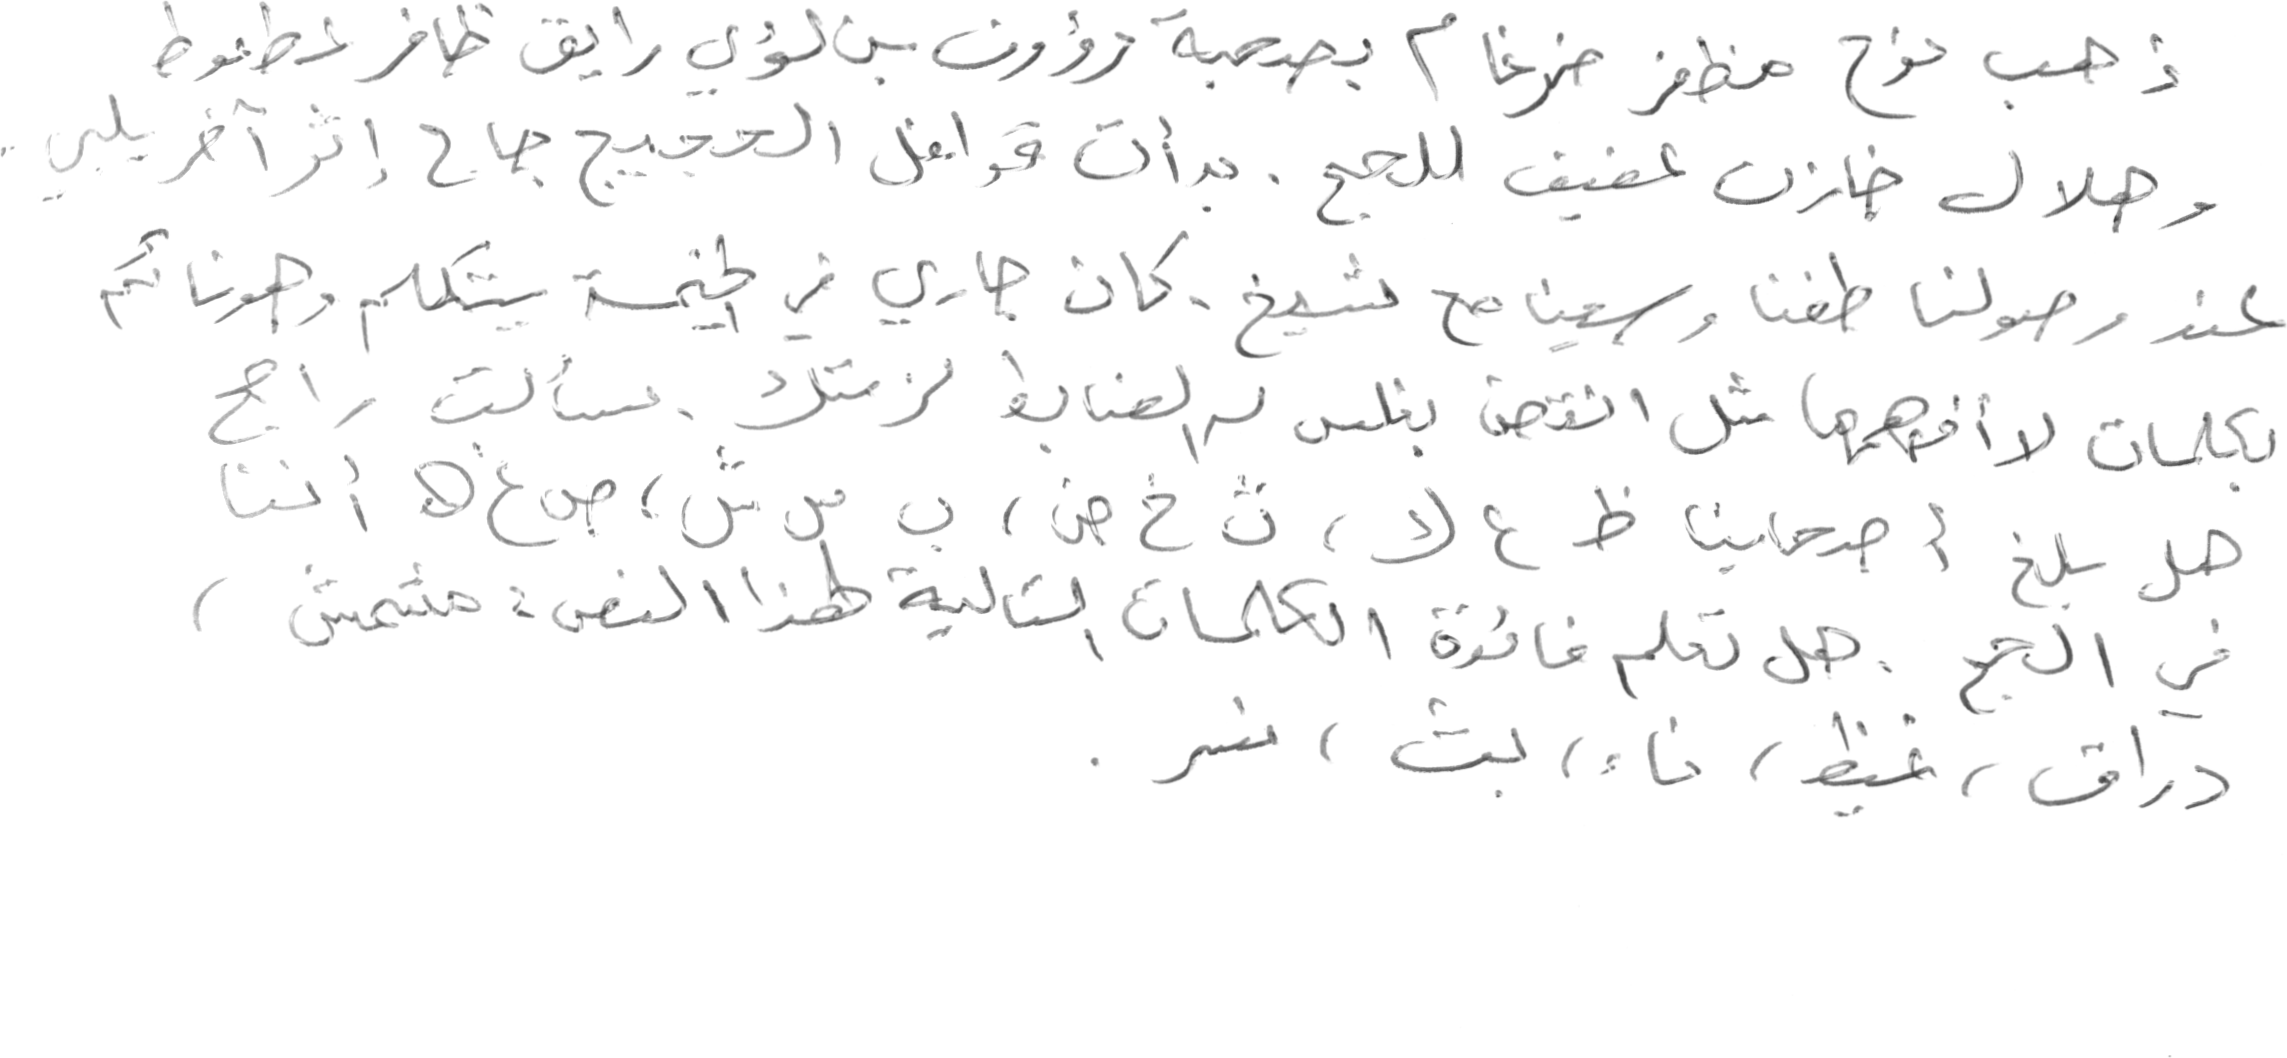 ذهب نوح مظفر ضرغام بصحبة رؤوف بن لؤي رايق ظافر غطغوط
وهلال خازن عفيف للحج . بدأت قوافل الحجيج حاج إثر آخر يلبي .
عند وصولنا طفنا وسعينا مع شيخ . كان جاري في الخيمة يتكلم وهو نائم
بكلمات لا أفهمها مثل انتقض بغلس الضابط لزمتك . سألت راجح
هل بلغ أصحابنا ظ ع ك ، ث خ ض ، ب س ش ، ص غ ه أننا
في الحج . هل تعلم فائدة الكلمات التالية لهذا النص : مشمش ،
دراق ، غيظ ، ناء ، لبث ، نسر .